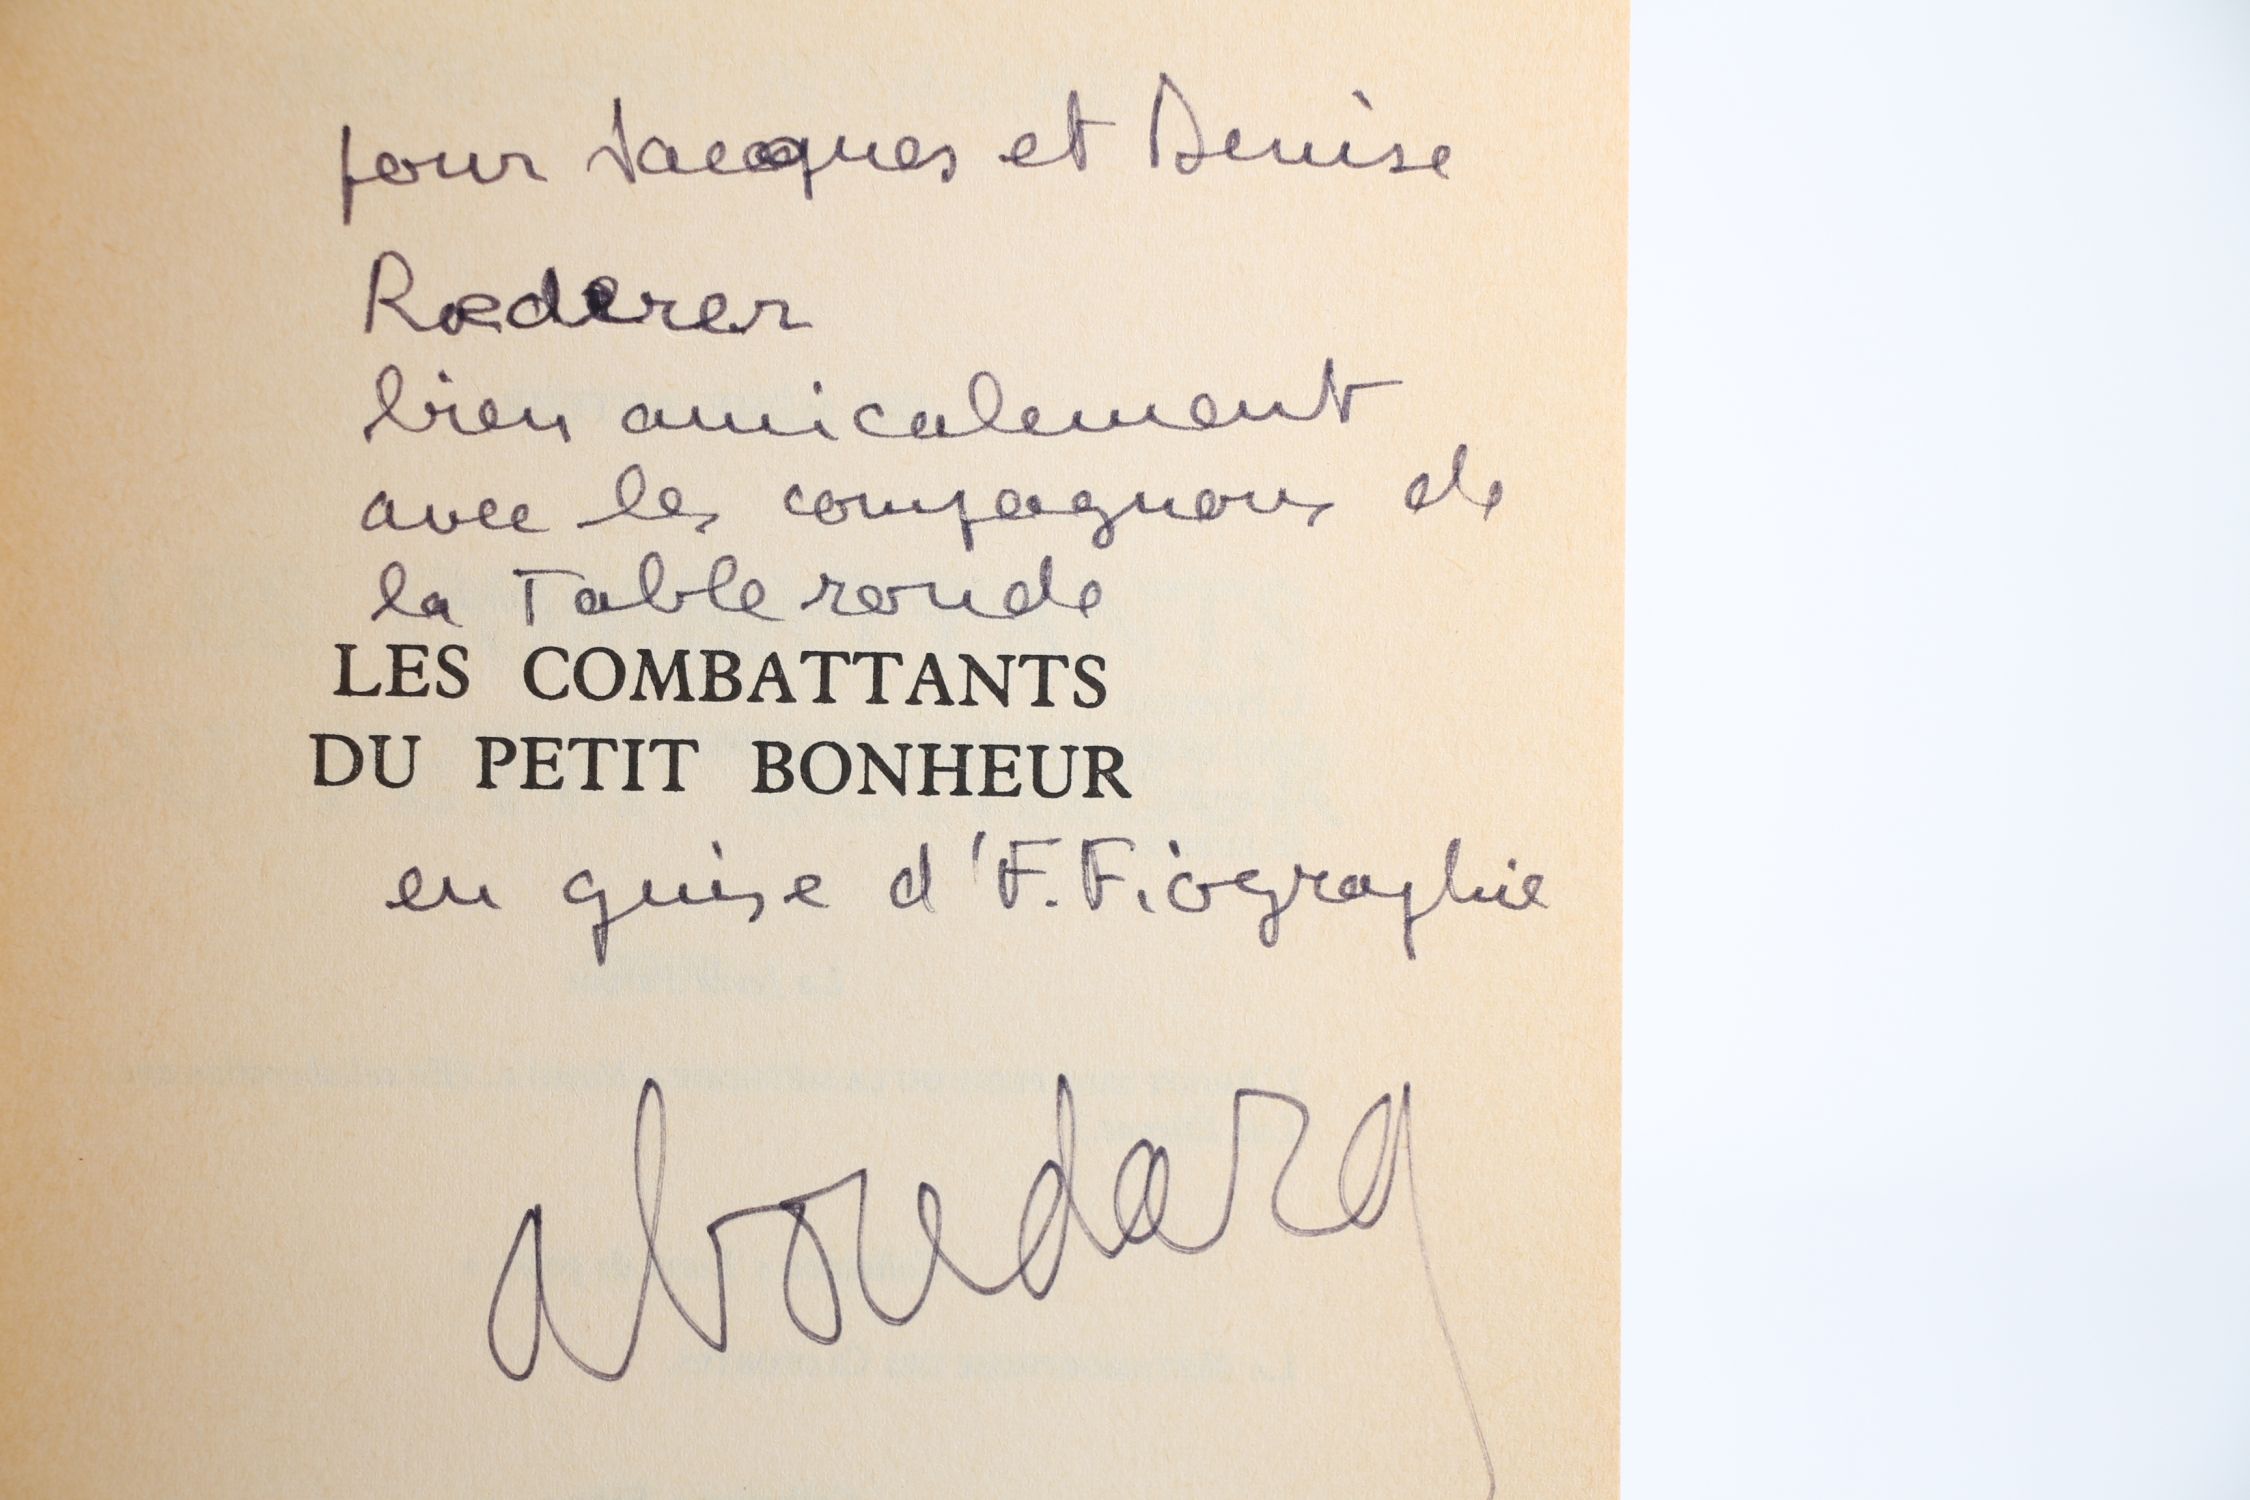 pour Jacques et Denise
Rœderer
bien amicalement
avec les compagnons de
la Table ronde
LES COMBATTANTS
DU PETIT BONHEUR
en guise d'F.Fiographie
aboudard